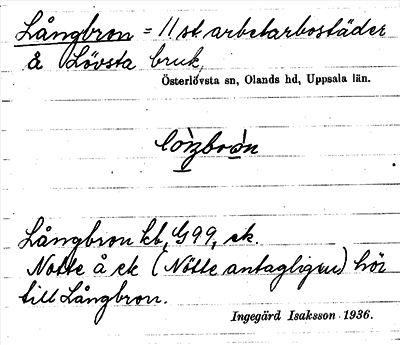 Långbron = 11 st. arbetarbostäder
å Lövsta bruk,
Österlövsta sn, Olands hd, Uppsala län.
Långbron kb, G99, ek.
Notte å ek (Nötte antagligen) hör
till Långbron.
Ingegärd Isaksson 1936.